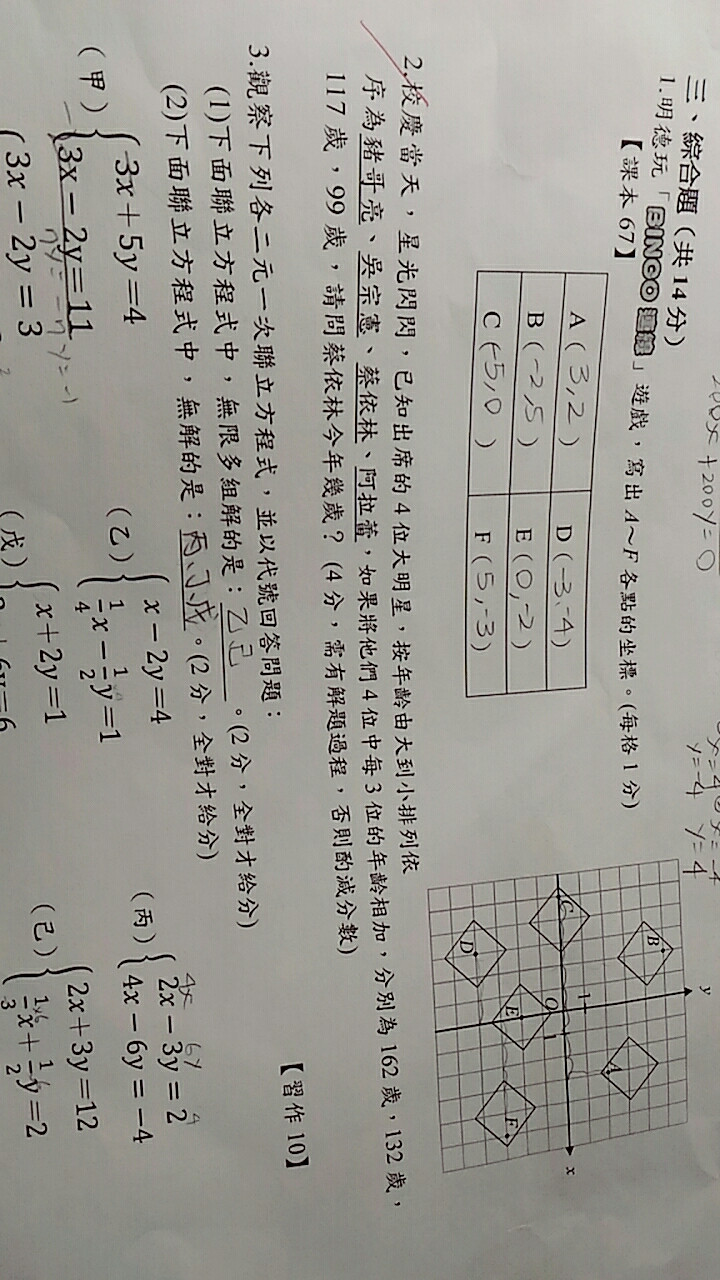 三、綜合題（共14分）
1.明德玩「BINGO 連線」遊戲，寫出A～F各點的坐標。(每格1分)
【課本67】
A ( 3,2 ) D (-3,-4)
B (-2,5 ) E (0,-2)
C (-5,0 ) F (5,-3)
y
B
A
C
1
O
1
x
D
E
F
2.校慶當天，星光閃閃，已知出席的4位大明星，按年齡由大到小排列依
序為豬哥亮、吳宗憲、蔡依林、阿拉蕾，如果將他們4位中每3位的年齡相加，分別為162歲，132歲，
117歲，99歲，請問蔡依林今年幾歲？(4分，需有解題過程，否則酌減分數)
【習作10】
3.觀察下列各二元一次聯立方程式，並以代號回答問題：
(1)下面聯立方程式中，無限多組解的是：乙己。(2分，全對才給分)
(2)下面聯立方程式中，無解的是：丙、丁、戊。(2分，全對才給分)
（甲） -3x＋5y＝4
3x－2y＝11
（乙） x－2y＝4
1/4x－1/2y＝1
（丙） 2x－3y＝2
4x－6y＝－4
3x－2y＝3
（戊） x＋2y＝1
（己） 2x＋3y＝12
1/3x＋1/2y＝2
200x+200y=0
y=-4 y=4
y=-1